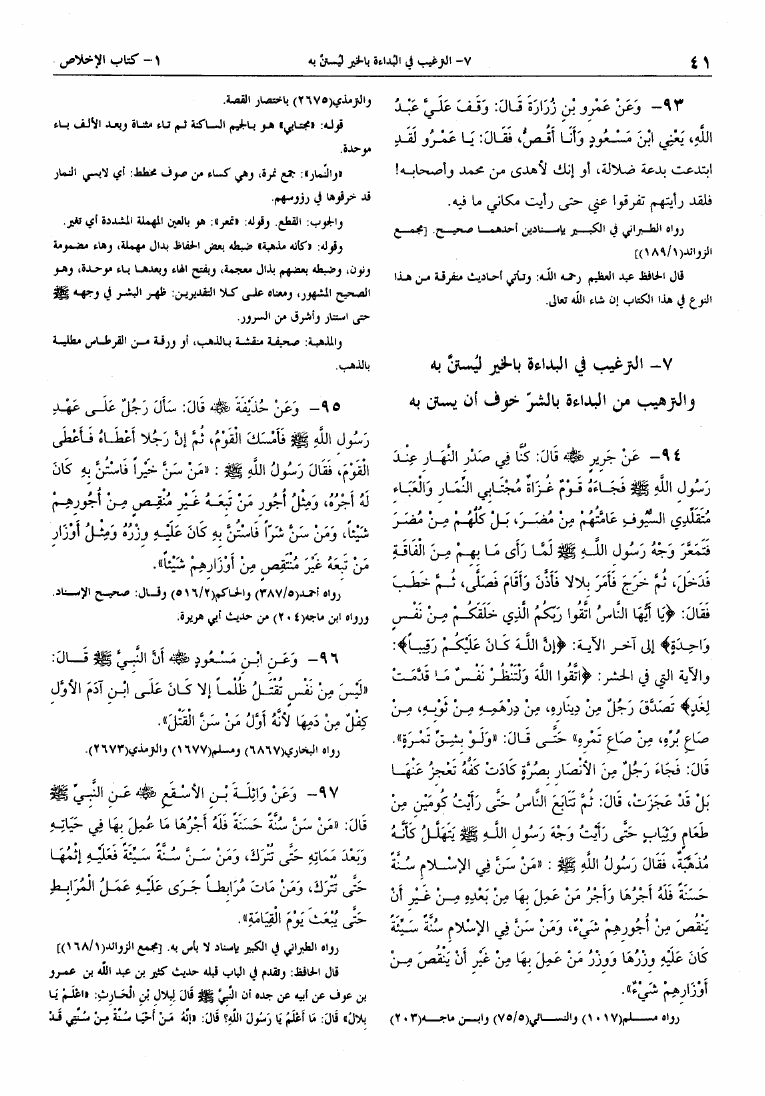 ٤١
٧- الترغيب في البداءة بالخير ليستنّ به
١- كتاب الإخلاص
٩٣- وَعَنْ عَمْرِو بْنِ زُرَارَةَ قَالَ: وَقَفَ عَلَيَّ عَبْدُ
اللَّهِ، يَعْنِي ابْنَ مَسْعُودٍ وَأَنَا أَقُصُّ، فَقَالَ: يَا عَمْرُو لَقَدِ
ابتدعت بدعة ضلالة، أو إنك لأهدى من محمد وأصحابه!
فلقد رأيتهم تفرقوا عني حتى رأيت مكاني ما فيه.
رواه الطبراني في الكبير بإسنادين أحدهما صحيح. [مجمع
الزوائد(١٨٩/١)]
قال الحافظ عبد العظيم رحمه الله: وتأتي أحاديث متفرقة من هذا
النوع في هذا الكتاب إن شاء الله تعالى.
٧- الترغيب في البداءة بالخير ليُستنَّ به
والترهيب من البداءة بالشرّ خوف أن يستن به
٩٤- عَنْ جَرِيرٍ ﷺ قَالَ: كُنَّا فِي صَدْرِ النَّهَارِ عِنْدَ
رَسُولِ اللَّهِ ﷺ فَجَاءَهُ قَوْمٌ غُزَاةٌ مُجْتَابِي النِّمَارِ وَالْعَبَاءِ
مُتَقَلِّدِي السُّيُوفِ عَامَّتُهُمْ مِنْ مُضَرَ، بَلْ كُلُّهُمْ مِنْ مُضَرَ
فَتَمَعَّرَ وَجْهُ رَسُولِ اللَّهِ ﷺ لَمَّا رَأَى مَا بِهِمْ مِنَ الْفَاقَةِ
فَدَخَلَ، ثُمَّ خَرَجَ فَأَمَرَ بِلالا فَأَذَّنَ وَأَقَامَ فَصَلَّى، ثُمَّ خَطَبَ
فَقَالَ: ﴿يَا أَيُّهَا النَّاسُ اتَّقُوا رَبَّكُمُ الَّذِي خَلَقَكُمْ مِنْ نَفْسٍ
وَاحِدَةٍ﴾ إلى آخر الآية: ﴿إِنَّ اللَّهَ كَانَ عَلَيْكُمْ رَقِيباً﴾:
والآية التي في الحشر: ﴿اتَّقُوا اللَّهَ وَلْتَنْظُرْ نَفْسٌ مَا قَدَّمَتْ
لِغَدٍ﴾ تَصَدَّقَ رَجُلٌ مِنْ دِينَارِهِ، مِنْ دِرْهَمِهِ مِنْ ثَوْبِهِ، مِنْ
صَاعِ بُرِّهِ، مِنْ صَاعِ تَمْرِهِ» حَتَّى قَالَ: «وَلَوْ بِشِقِّ تَمْرَةٍ».
قَالَ: فَجَاءَ رَجُلٌ مِنَ الأَنْصَارِ بِصُرَّةٍ كَادَتْ كَفُّهُ تَعْجِزُ عَنْهَا
بَلْ قَدْ عَجَزَتْ، قَالَ: ثُمَّ تَتَابَعَ النَّاسُ حَتَّى رَأَيْتُ كُومَيْنِ مِنْ
طَعَامٍ وَثِيَابٍ حَتَّى رَأَيْتُ وَجْهَ رَسُولِ اللَّهِ ﷺ يَتَهَلَّلُ كَأَنَّهُ
مُذْهَبَةٌ، فَقَالَ رَسُولُ اللَّهِ ﷺ : «مَنْ سَنَّ فِي الإِسْلامِ سُنَّةً
حَسَنَةً فَلَهُ أَجْرُهَا وَأَجْرُ مَنْ عَمِلَ بِهَا مِنْ بَعْدِهِ مِنْ غَيْرِ أَنْ
يَنْقُصَ مِنْ أُجُورِهِمْ شَيْءٌ، وَمَنْ سَنَّ فِي الإِسْلامِ سُنَّةً سَيِّئَةً
كَانَ عَلَيْهِ وِزْرُهَا وَوِزْرُ مَنْ عَمِلَ بِهَا مِنْ غَيْرِ أَنْ يَنْقُصَ مِنْ
أَوْزَارِهِمْ شَيْءٌ».
رواه مسلم(١٠١٧) والنسائي(٧٥/٥) وابن ماجه(٢٠٣)
والترمذي(٢٦٧٥) باختصار القصة.
قوله: «مجتابي» هو بالجيم الساكنة ثم تاء مثناة وبعد الألف باء
موحدة.
«والنِّمار»: جمع نمرة، وهي كساء من صوف مخطط: أي لابسي النمار
قد خرقوها في رؤوسهم.
والجوب: القطع. وقوله: «تمعر»: هو بالعين المهملة المشددة أي تغير.
وقوله: «كأنه مذهبة» ضبطه بعض الحفاظ بدال مهملة، وهاء مضمومة
ونون، وضبطه بعضهم بذال معجمة، وبفتح الهاء وبعدها باء موحدة، وهو
الصحيح المشهور، ومعناه على كلا التقديرين: ظهر البشر في وجهه ﷺ
حتى استنار وأشرق من السرور.
والمذهبة: صحيفة منقشة بالذهب، أو ورقة من القرطاس مطلية
بالذهب.
٩٥- وَعَنْ حُذَيْفَةَ ﷺ قَالَ: سَأَلَ رَجُلٌ عَلَى عَهْدِ
رَسُولِ اللَّهِ ﷺ فَأَمْسَكَ الْقَوْمُ، ثُمَّ إِنَّ رَجُلا أَعْطَاهُ فَأَعْطَى
الْقَوْمَ، فَقَالَ رَسُولُ اللَّهِ ﷺ : «مَنْ سَنَّ خَيْراً فَاسْتُنَّ بِهِ كَانَ
لَهُ أَجْرُهُ، وَمِثْلُ أُجُورِ مَنْ تَبِعَهُ غَيْرَ مُنْتَقِصٍ مِنْ أُجُورِهِمْ
شَيْئاً، وَمَنْ سَنَّ شَرّاً فَاسْتُنَّ بِهِ كَانَ عَلَيْهِ وِزْرُهُ وَمِثْلُ أَوْزَارِ
مَنْ تَبِعَهُ غَيْرَ مُنْتَقِصٍ مِنْ أَوْزَارِهِمْ شَيْئاً».
رواه أحمد(٣٨٧/٥) والحاكم(٥١٦/٢) وقال: صحيح الإسناد.
ورواه ابن ماجه(٢٠٤) من حديث أبي هريرة.
٩٦- وَعَنِ ابْنِ مَسْعُودٍ ﷺ أَنَّ النَّبِيَّ ﷺ قَالَ:
«لَيْسَ مِنْ نَفْسٍ تُقْتَلُ ظُلْماً إِلا كَانَ عَلَى ابْنِ آدَمَ الأَوَّلِ
كِفْلٌ مِنْ دَمِهَا لأَنَّهُ أَوَّلُ مَنْ سَنَّ الْقَتْلَ».
رواه البخاري(٦٨٦٧) ومسلم(١٦٧٧) والترمذي(٢٦٧٣).
٩٧- وَعَنْ وَاثِلَةَ بْنِ الأَسْقَعِ ﷺ عَنِ النَّبِيِّ ﷺ
قَالَ: «مَنْ سَنَّ سُنَّةً حَسَنَةً فَلَهُ أَجْرُهَا مَا عُمِلَ بِهَا فِي حَيَاتِهِ
وَبَعْدَ مَمَاتِهِ حَتَّى تُتْرَكَ، وَمَنْ سَنَّ سُنَّةً سَيِّئَةً فَعَلَيْهِ إِثْمُهَا
حَتَّى تُتْرَكَ، وَمَنْ مَاتَ مُرَابِطاً جَرَى عَلَيْهِ عَمَلُ الْمُرَابِطِ
حَتَّى يُبْعَثَ يَوْمَ الْقِيَامَةِ».
رواه الطبراني في الكبير بإسناد لا بأس به. [مجمع الزوائد(١٦٨/١)]
قال الحافظ: وتقدم في الباب قبله حديث كثير بن عبد الله بن عمرو
بن عوف عن أبيه عن جده أن النبيَّ ﷺ قَالَ لِبِلالِ بْنِ الْحَارِثِ: «اعْلَمْ يَا
بِلالُ» قَالَ: مَا أَعْلَمُ يَا رَسُولَ اللَّهِ؟ قَالَ: «إِنَّهُ مَنْ أَحْيَا سُنَّةً مِنْ سُنَّتِي قَدْ